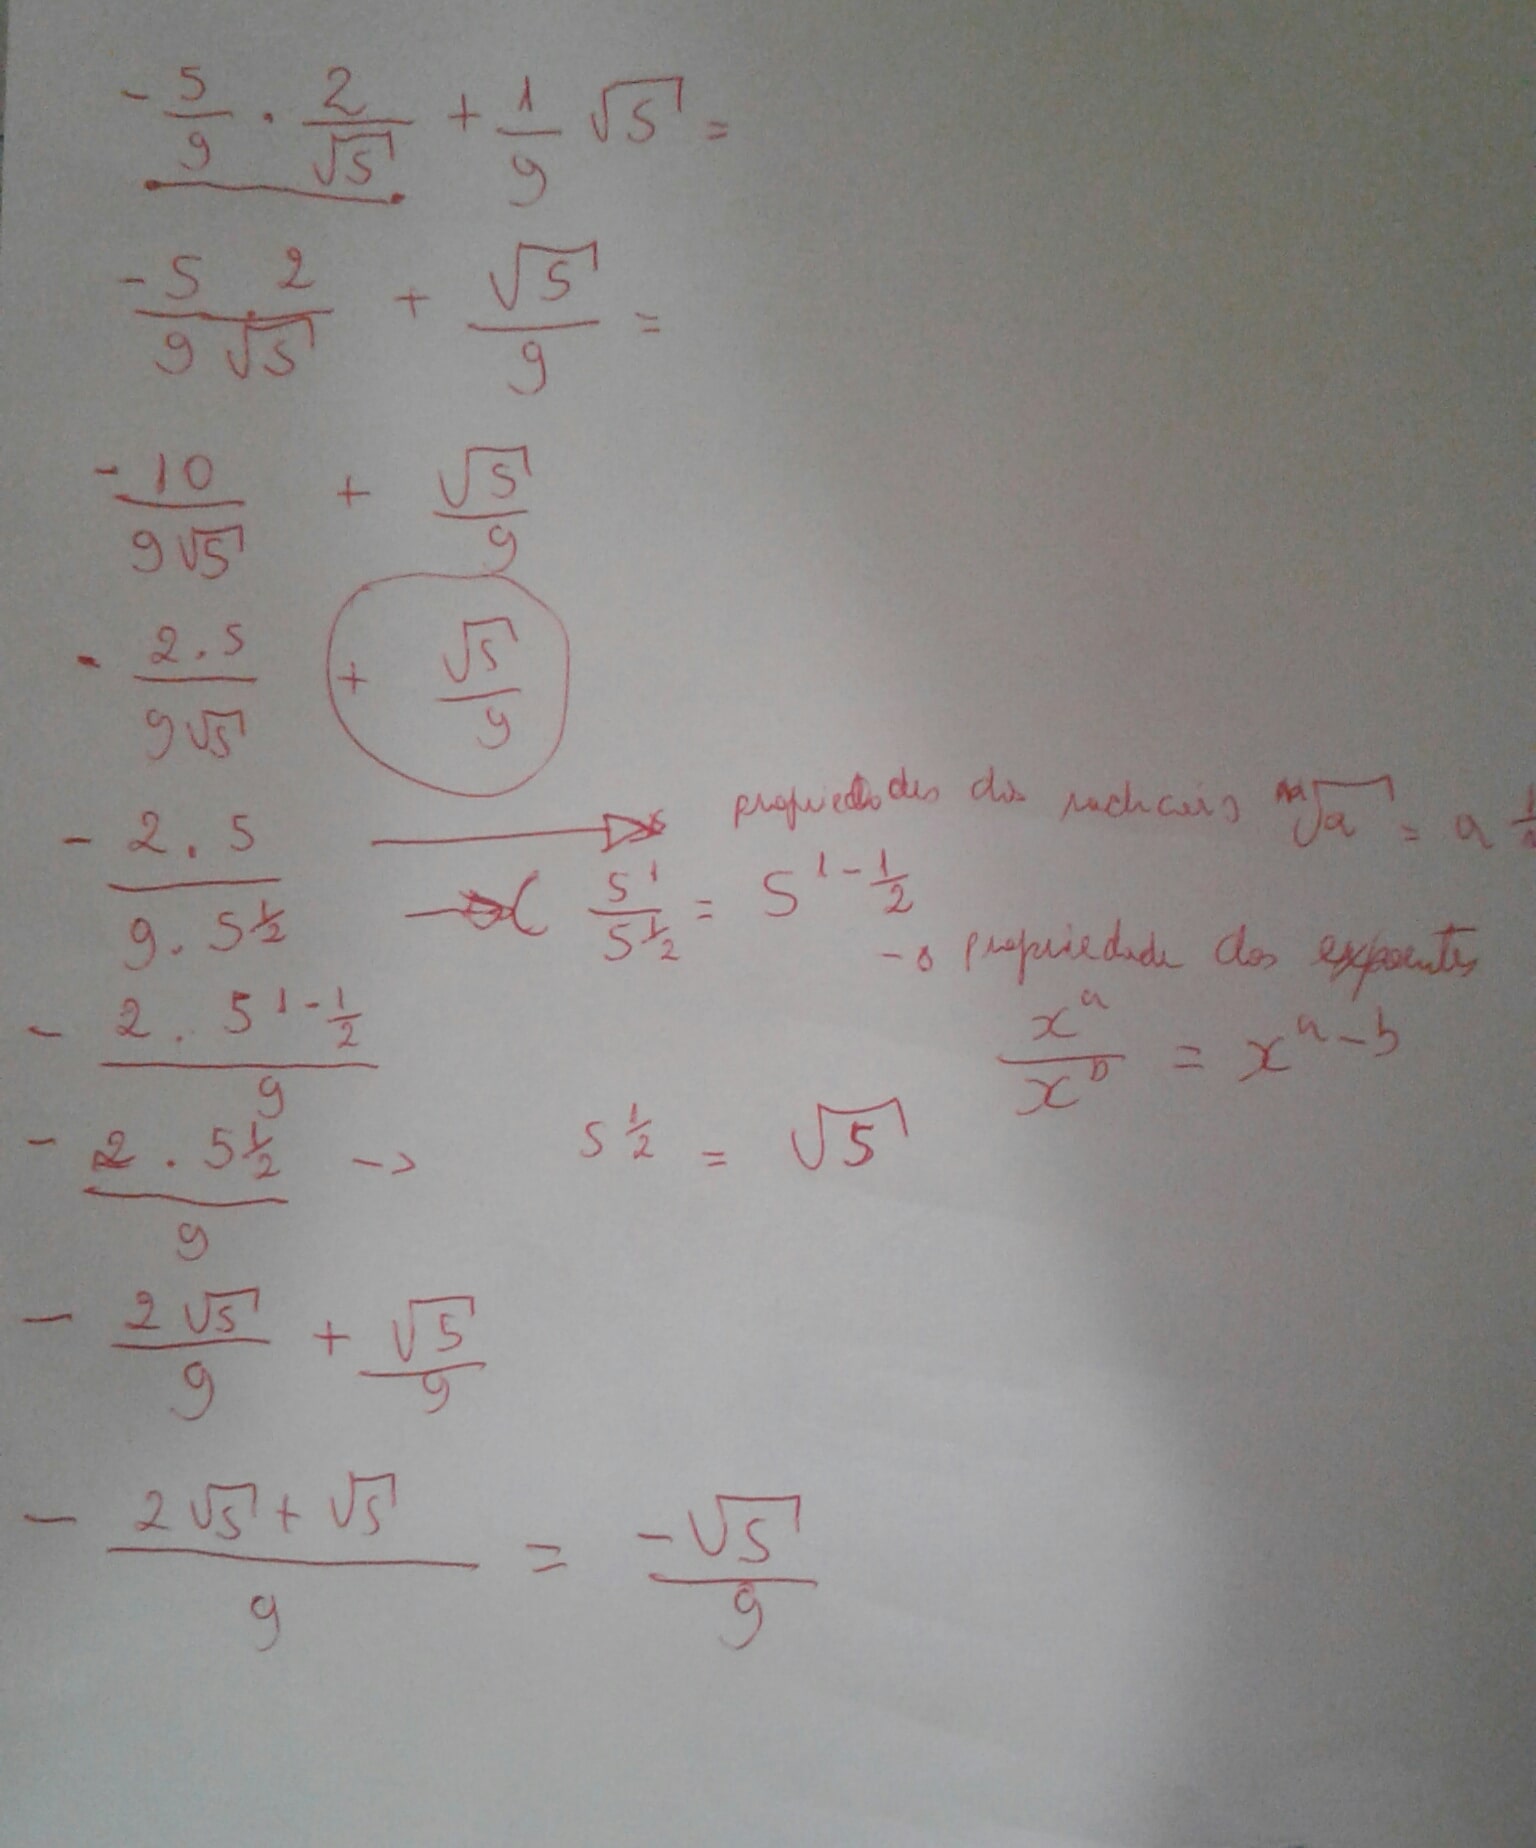 - 5/9 · 2/√5 + 1/9 √5 =
- 5 · 2 / 9√5 + √5/9 =
- 10/9√5 + √5/9
- 2.5/9√5 + √5/9
- 2.5/9.5^1/2 → propriedades dos radicais √a = a
→ ( 5^1/5^1/2 = 5^1-1/2
→ propriedade dos expoentes
x^a/x^b = x^a-b
- 2.5^1-1/2 / 9
- 2.5^1/2 / 9 -> 5^1/2 = √5
- 2√5/9 + √5/9
- 2√5+√5 / 9 = -√5/9